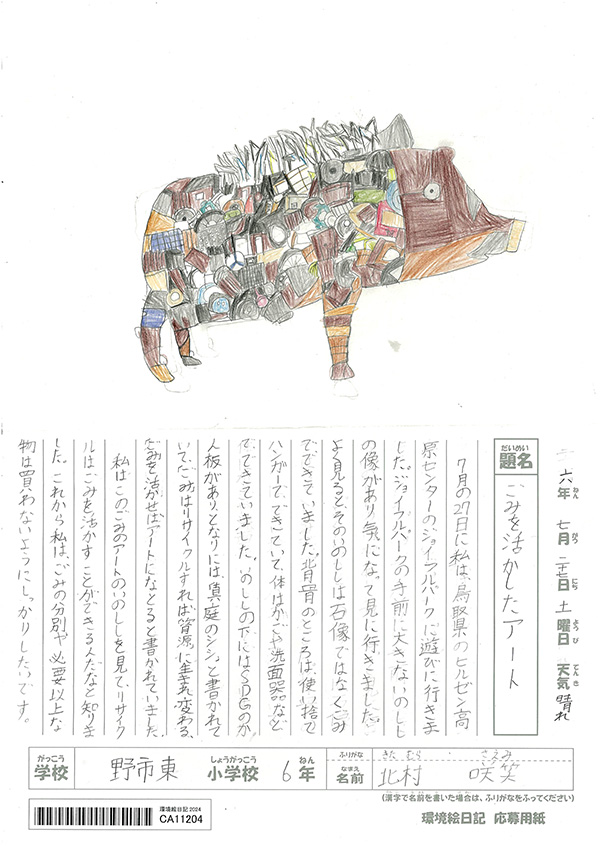 六年 七月 二七日 土曜日 天気 晴れ
ねん がつ にち ようび てんき
だいめい
題名 ごみを活かしたアート
7月の27日に私は、鳥取県のヒルゼン高
原センターのジョイフルパークに遊びに行きま
した。ジョイフルパークの手前に大きないのしし
の像があり気になって見に行きました。
よく見るとそのいのししは石像ではなくごみ
でできていました。背骨のところは、使い捨て
ハンガーで、できていて、体はかごや洗面器など
で、できていました。いのししの下にはSDGのか
人板がありとなりには、真庭のシシと書かれて
いて、ごみはリサイクルすれば資源に生まれ変わる、
ごみを活かせばアートになとると書かれていました。
私はこのごみのアートのいのししを見て、リサイク
ルはごみを活かすことができるんだなと知りま
した。これから私は、ごみの分別や必要以上な
物は買わないようにしっかりしたいです。
がっこう しょうがっこう ねん ふりがな きたむら さえみ
学校 野市東 小学校 6年 なまえ 名前 北村 咲笑
(漢字で名前を書いた場合は、ふりがなをふってください)
環境絵日記 2024
CA11204
環境絵日記 応募用紙